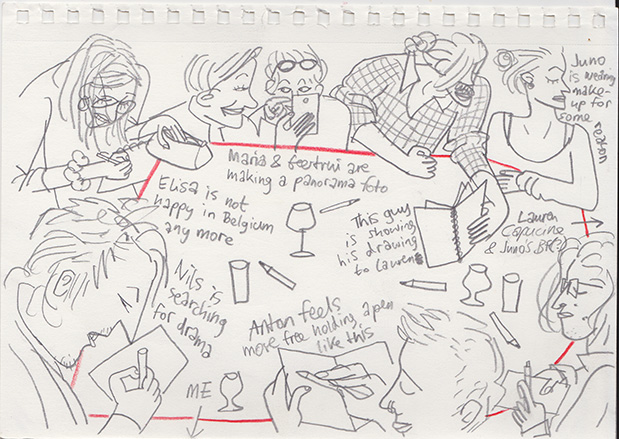 Juno
is wearing
make-
up for
some
reason
Maria & Geertrui are
making a panorama foto
Elisa is not
happy in Belgium
any more
This guy
is showing
his drawing
to Lauren
Lauren
Capucine
& Juno's
Nils is
searching
for drama
Anton feels
more free holding a pen
like this
ME